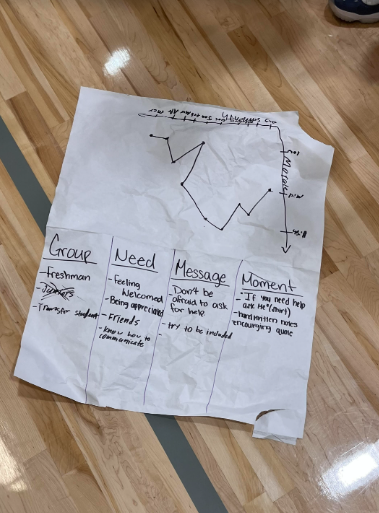 Morale
low
mid
High
Group
- Freshman
- Juniors
- Transfer student
Need
- Feeling
Welcomed
- Being appreciated
- Friends
- know how to
communicate
Message
- Don't be
afraid to ask
for help
- try to be included
Moment
- If you need help
ask me
- handwritten notes
encouraging quote